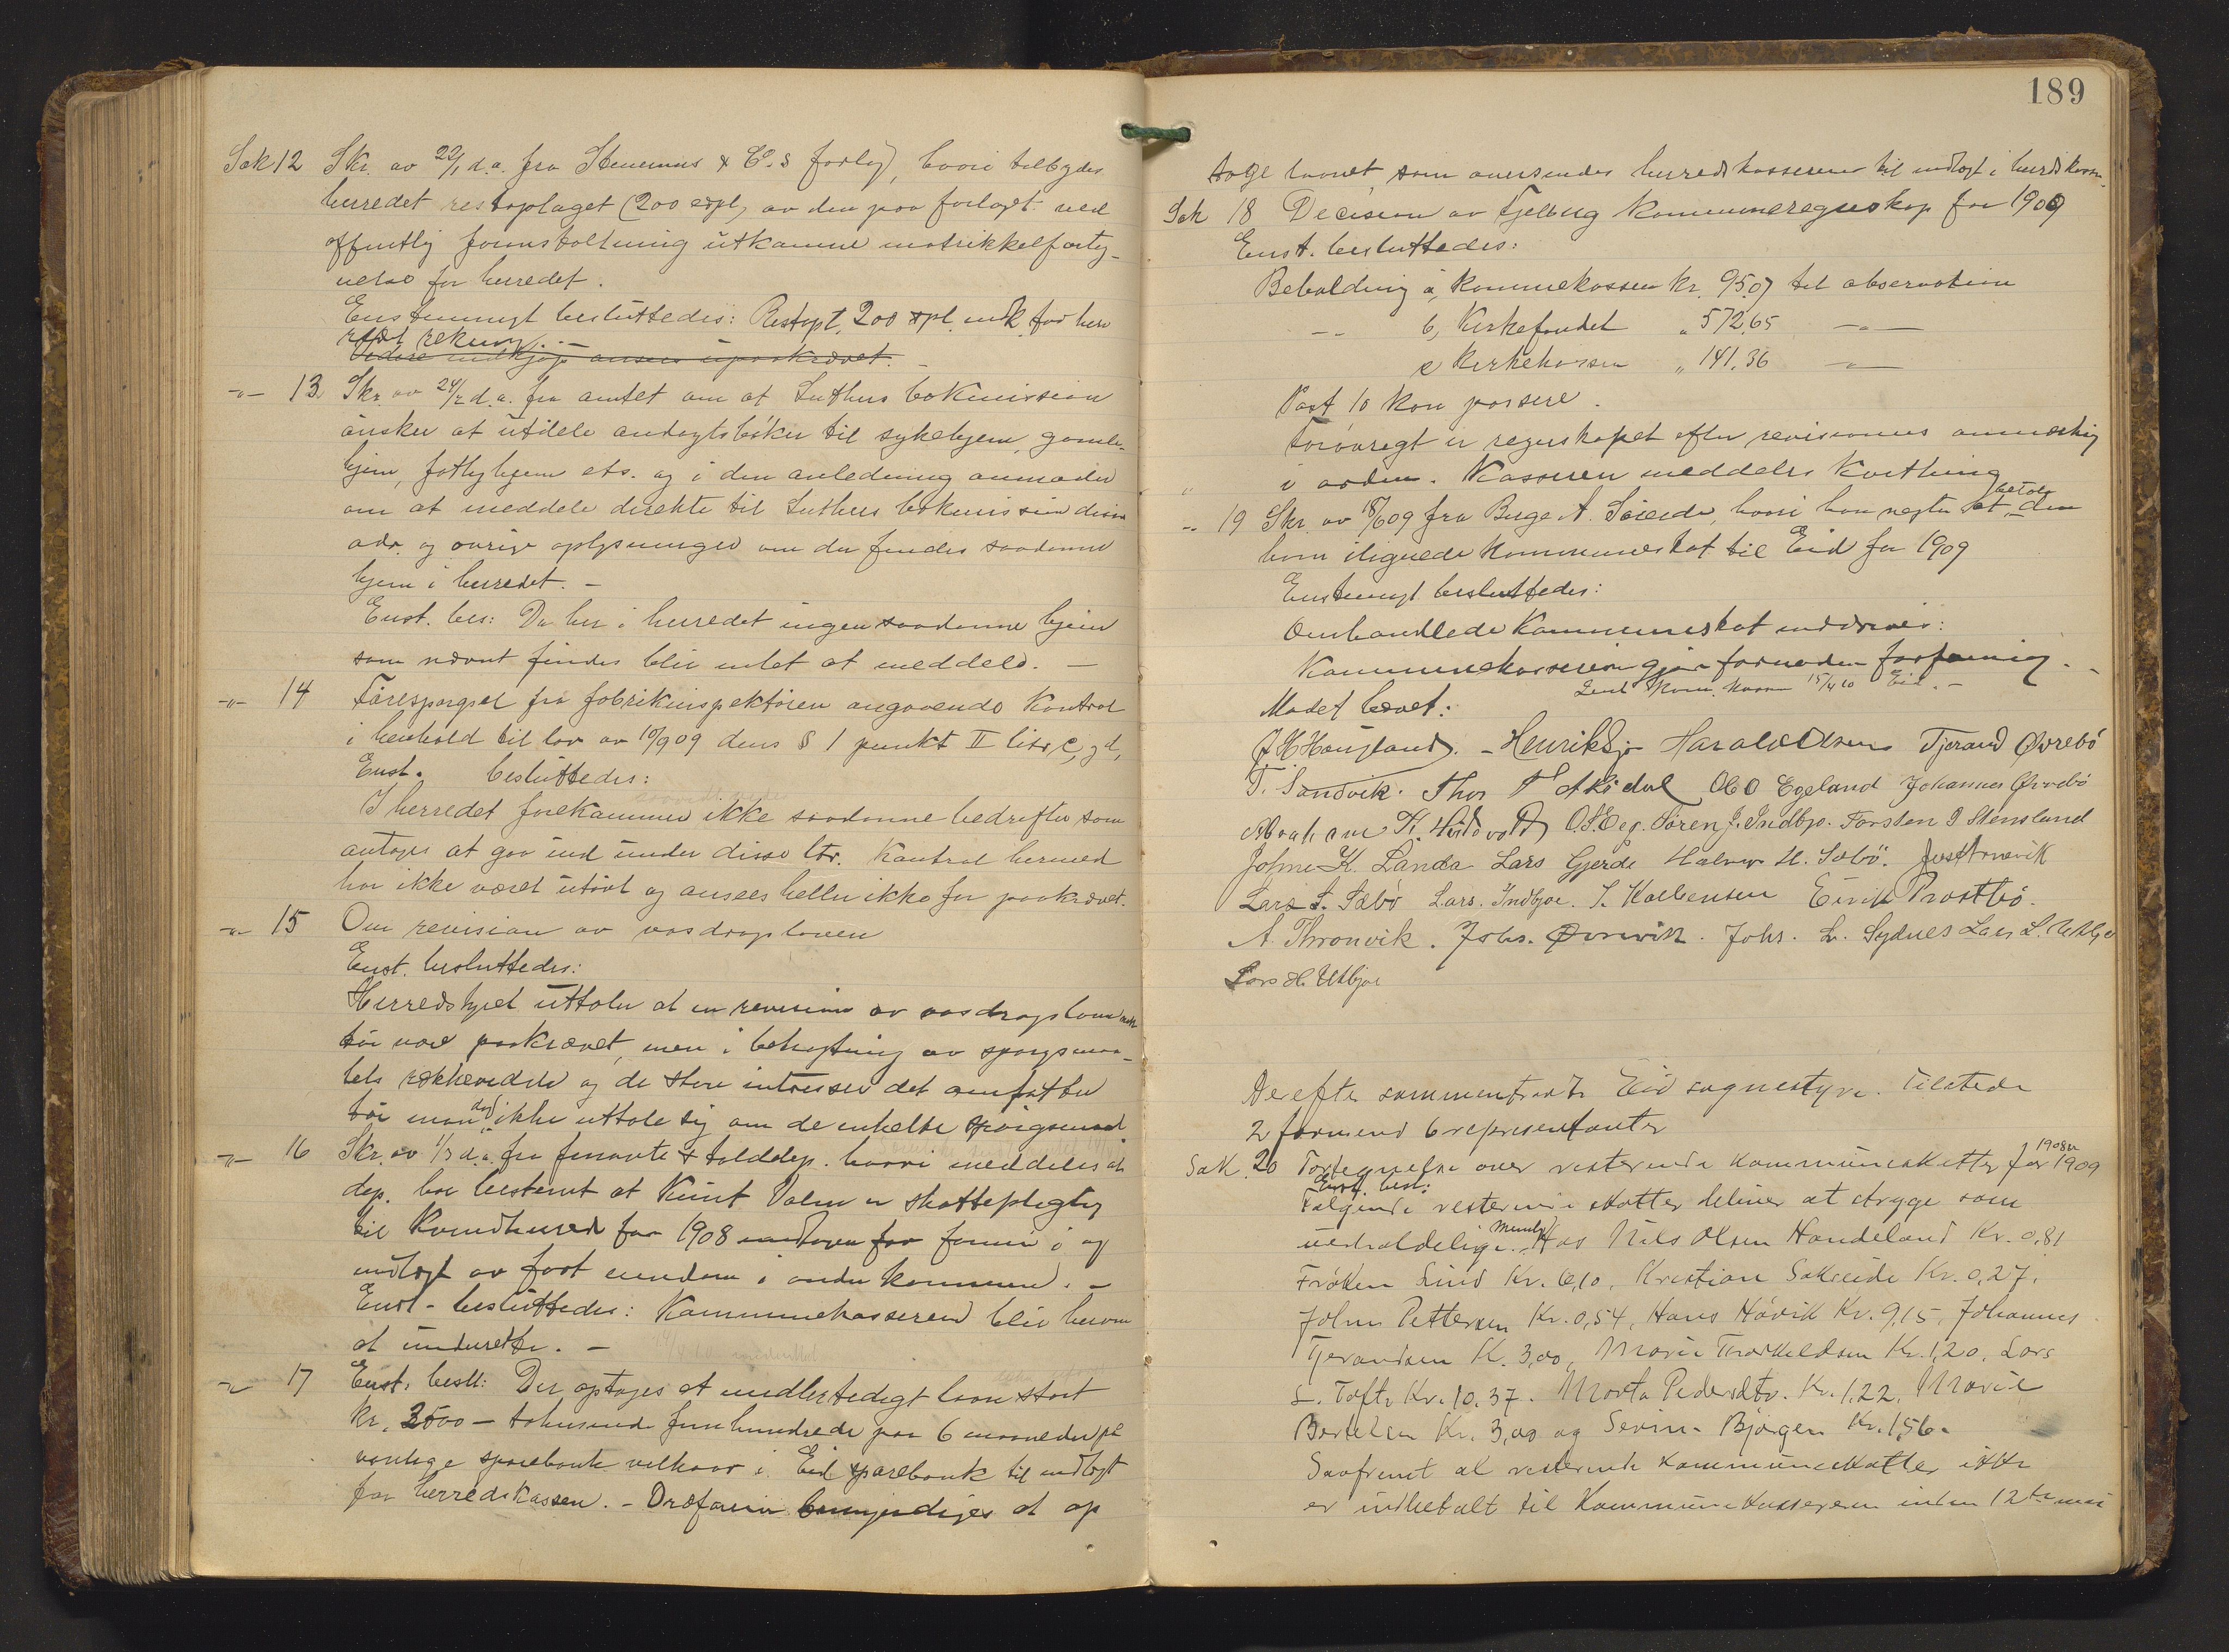 Sak 12 Skr. av 22/1 d.a. fra Stenernes & Co.s forlag, hvori tilbydes
herredet restoplaget (200 expl) av den paa forlaget ved
offentlig foranstaltning utkomne matrikkelforteg-
nelse for herredet.
Enstemmigt besluttedes: Restopl. 200 expl. indk. for her
redet rekning. -
Videre indkjøp ansees upaakrævet. -
-"- 13 Skr. av 24/2 d.a. fra amtet om at Luthers bokmission
ønsker at utdele andagtsbøker til sykehjem, gamle-
hjem, fattighjem ets. og i den anledning anmoder
om at meddele direkte til Luthers bokmission disses
adr. og øvrige oplysninger om der findes saadanne
hjem i herredet. -
Enst. bes: Da her i herredet ingen saadanne hjem
som nævnt findes blir intet at meddele. -
-"- 14 Forespørgsel fra fabrikinspektøren angaaende kontrol
i henhold til lov av 10/9 09 dens § 1 punkt II litr. c og d,
Enst. besluttedes:
I herredet forekommer ikke saadanne bedrifter som
antages at gaa ind under disse ltr. Kontrol hermed
har ikke været utøvt og ansees heller ikke for paakrævet.
-"- 15 Om revision av vasdragsloven
Enst. besluttedes:
Herredstyret uttaler at en revision av vasdragsloven
bør være paakrævet, men i betragtning av spørgsmaa-
lets rækkevidde og de store intresser det omfatter
bør man dog ikke uttale sig om de enkelte spørgsmaal
-"- 16 Skr. av 1/3 d.a. fra finants & tolddep. hvori meddeles at
dep. har bestemt at Knut Valen er skattepligtig
til Kvindherred for 1908 for formue i og
indtægt av fast eiendom i anden kommune. -
Enst. besluttedes: Kommunekassereren blir herom
at underrette. -
-"- 17 Enst. besl: Der optages et midlertidigt laan stort
kr. 2500 - totusend femhundrede paa 6 maaneder på
vanlige sparebank vilkaar i Eid sparebank til indtægt
for herredskassen. - Ordføreren bemyndiges at op
189
tage laanet, som oversendes herredskassereren til indtægt i herredskassen.
Sak 18 Decision av Fjelberg kommuneregnskap for 1909
Enst. besluttedes:
Beholdning a, kommekassen kr. 95.07 til observation
-"- b, Kirkefondet " 572,65 -"-
c Kirkekassen " 141.36 -"-
Post 10 kan passere.
Forøvrigt er regnskapet efter revisionens anmerkning
i orden. Kassereren meddeles kvittering
-"- 19 Skr. av 18/6 09 fra Birge A. Søreide, hvori han negter at betale den
ham ilignede kommuneskat til Eid for 1909
Enstemmigt besluttedes:
Omhandlede kommuneskat inddrives:
Kommunekassereren gjør fornøden forføining. -
Send kom. kasser 15/4 10 Eid. -
Mødet hævet:
J. H. Haugland. - Henrik Harald Olsen Tjerand Øvrebö
T. Sandvik. Thor Ole O Egeland Johannes Øvrebö
Abraham K. O. S. Eeg. Sören J. Indbjo. Torsten Stensland
Johne K. Landa Lars Gjerde Halvor H. Sæbö. Tronevik
Lars S. Sæbö Lars. Indbjoe. Eirik Prostbö.
A. Thronvik. Johs. Øvrevik. Johs. L. Sydnes Lars L. Utbjo
Lars H. Utbjoe
Derefter sammentraadte Eid sognestyre. Tilstede
2 formend 6 representanter
Sak. 20 Fortegnelse over resterende kommuneskatter for 1908 og 1909
Enst. besl:
Følgende resterende skatter bliver at stryge som
uerholdelige. Hos Nils Olsen Handeland Kr. 0,81
Frøken Lind Kr. 6,10, Kristian Sakseide Kr. 0,27,
John Pettersen Kr. 0,54, Hans Hövik Kr. 9,15, Johannes
Tjerandsen K. 3,00, Marie Thorkeldsen Kr. 1,20, Lars
L. Tofte Kr. 10.37. Marta Pedersdtr. Kr. 1,22, Marie
Bertelsen Kr. 3,00 og Sevrin Bjørgen Kr. 1,56.
Saafremt at resterende kommuneskatter ikke
er indbetalt til Kommunekassereren inden 12te mai